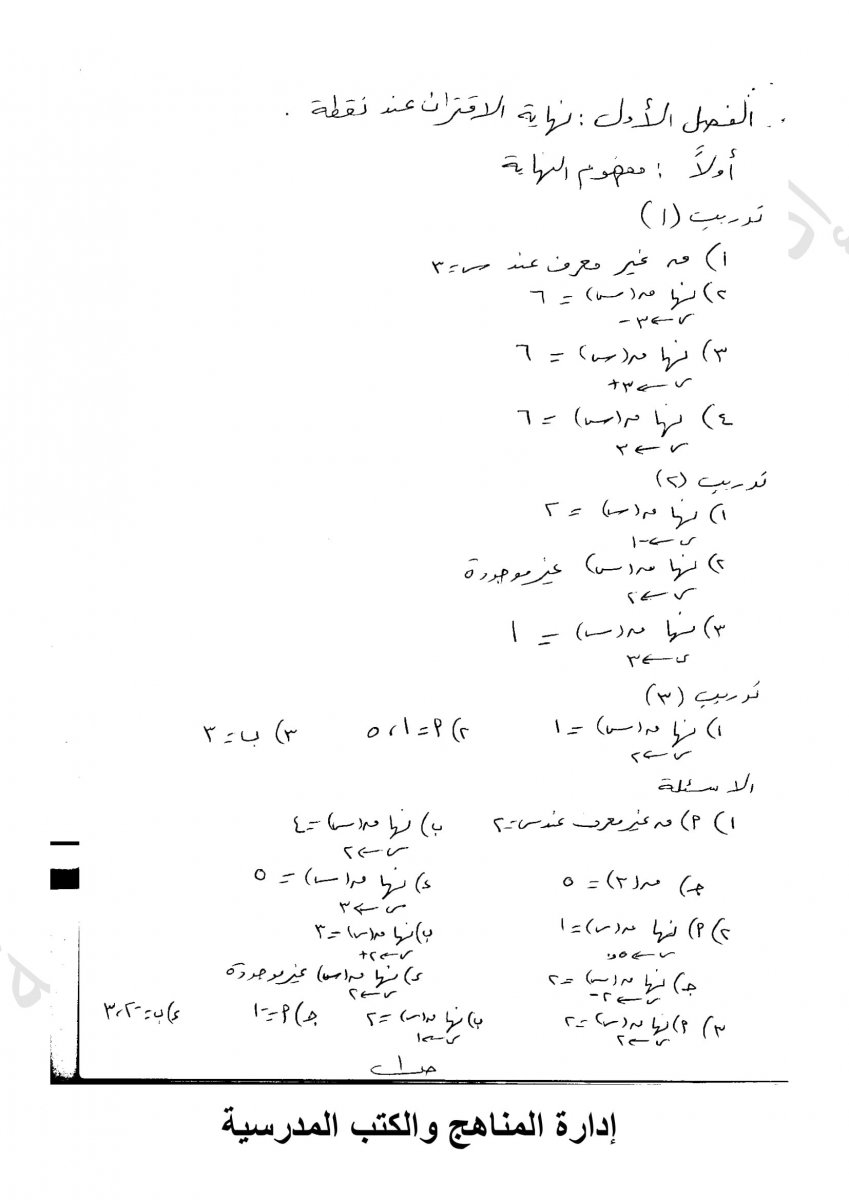 الفصل الأول : نهاية الاقتران عند نقطة .
أولاً : مفهوم النهاية
تدريب (١)
١) ق غير معرف عند س = ٣
٢) نها ق(س) = ٦
س ← ٣-
٣) نها ق(س) = ٦
س ← ٣+
٤) نها ق(س) = ٦
س ← ٣
تدريب (٢)
١) نها ق(س) = ٢
س ← -١
٢) نها ق(س) غير موجودة
س ← ٢
٣) نها ق(س) = ١
س ← ٣
تدريب (٣)
١) نها ق(س) = ١ ٢) أ = ١، ٥ ٣) ب = ٣
س ← ٢
الاسئلة
١) أ) ق غير معرف عند س = ٢ ب) نها ق(س) = ٤
س ← ٢
جـ) ق(٣) = ٥ د) نها ق(س) = ٥
س ← ٣
٢) أ) نها ق(س) = ١ ب) نها ق(س) = ٣
س ← ٢+
جـ) نها ق(س) = ٢ د) نها ق(س) غير موجودة
س ← ٢- س ← ٢
٣) أ) نها ق(س) = ٢ ب) نها ق(س) = ٢ جـ) أ = -١ د) ب = -٢، ٣
س ← ٢ س ← ١
صـ ١
إدارة المناهج والكتب المدرسية